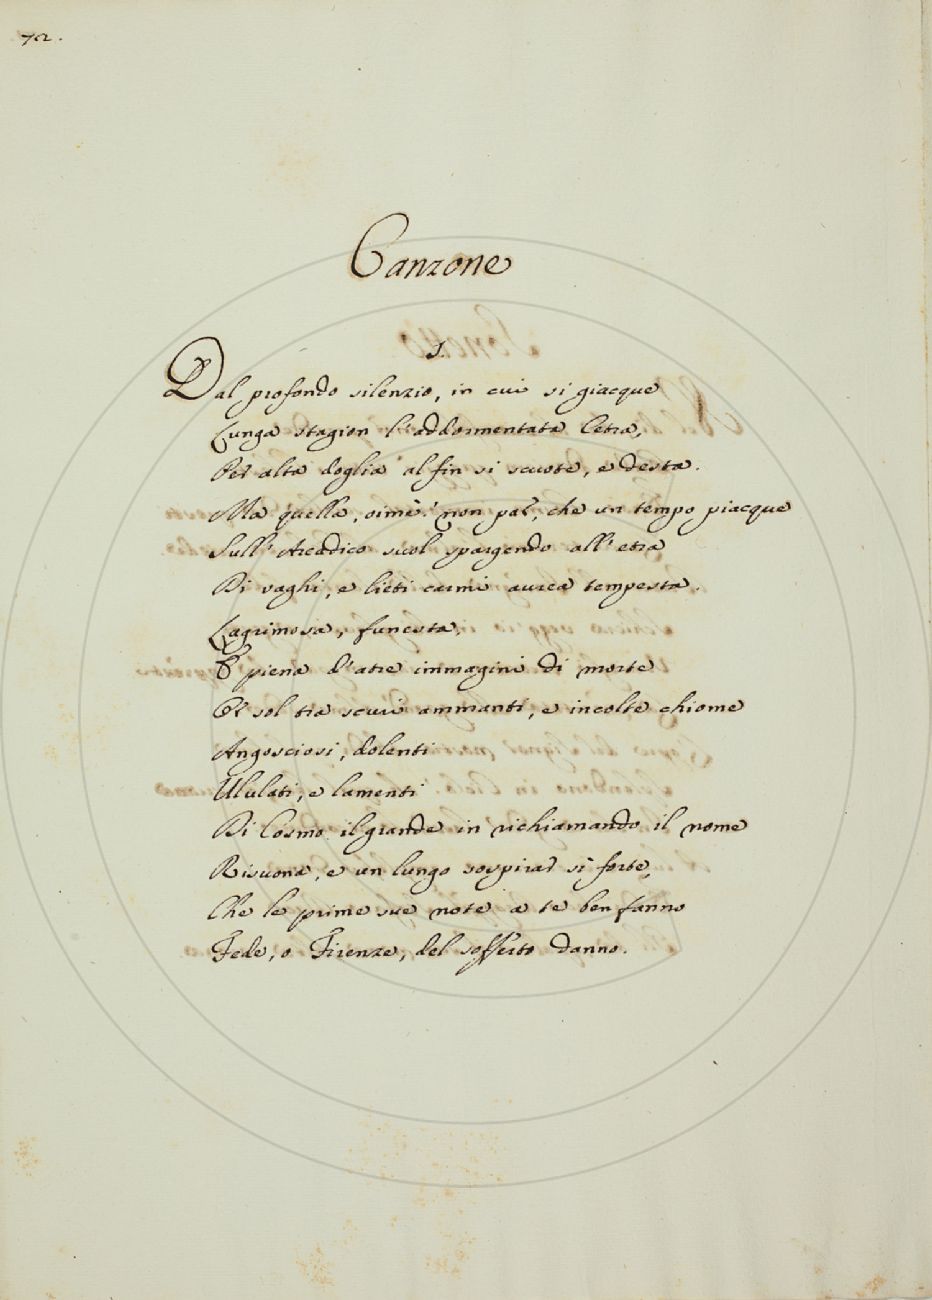 72.
Canzone
1.
Dal profondo silenzio, in cui si giacque
Lunga stagion l'addormentata Cetra,
Per alta doglia al fin si scuote, e desta.
Ma quella, oimè! non par, che un tempo piacque
Sull'Arcadico suol spargendo all'etra
Di vaghi, e lieti carmi aurea tempesta.
Lagrimosa, funesta,
E piena d'atre immagini di morte
Or sol tra scuri ammanti, e incolte chiome
Angosciosi, dolenti
Ululati, e lamenti
Di Cosmo il grande in richiamando il nome
Risuona, e un lungo sospirar sì forte,
Che le prime sue note a te ben fanno
Fede, o Firenze, del sofferto danno.